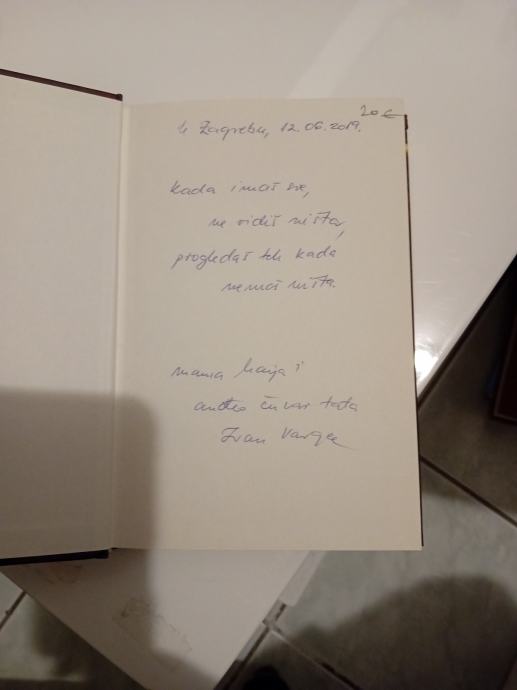 20 €
U Zagrebu, 12.06.2019.
kada imaš sve,
ne vidiš ništa,
progledaš tek kada
nemaš ništa.
mama i
čuvar tata
Ivan